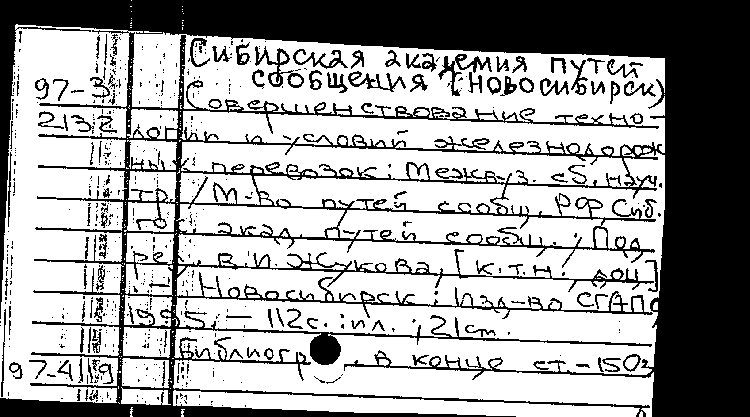 Сибирская академия путей
сообщения (Новосибирск)
97-3
Совершенствование техно-
2132
логии и условий железнодорож
ных перевозок: Межвуз. сб. науч.
тр. / М-во путей сообщ. РФ, Сиб.
гос. акад. путей сообщ.; Под
ред. В.И. Жукова, [к.т.н., доц]
. - Новосибирск: Изд-во СГАПС
1995. - 112с. : ил. ; 21 см.
Библиогр. в конце ст. - 150э
97-4119